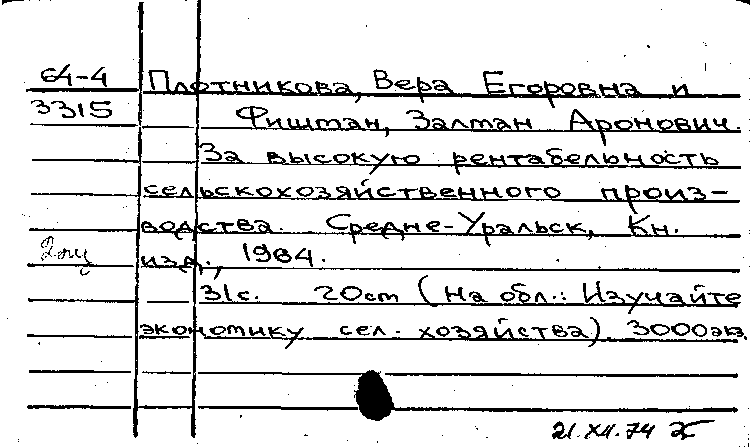 64-4 Плотникова, Вера Егоровна и
3315 Фиштан, Залман Аронович.
За высокую рентабельность
сельскохозяйственного произ-
водства. Средне-Уральск, Кн.
изд., 1964.
31с. 20cm (На обл.: Изучайте
экономику сел. хозяйства). 3000экз.
21.XII.74